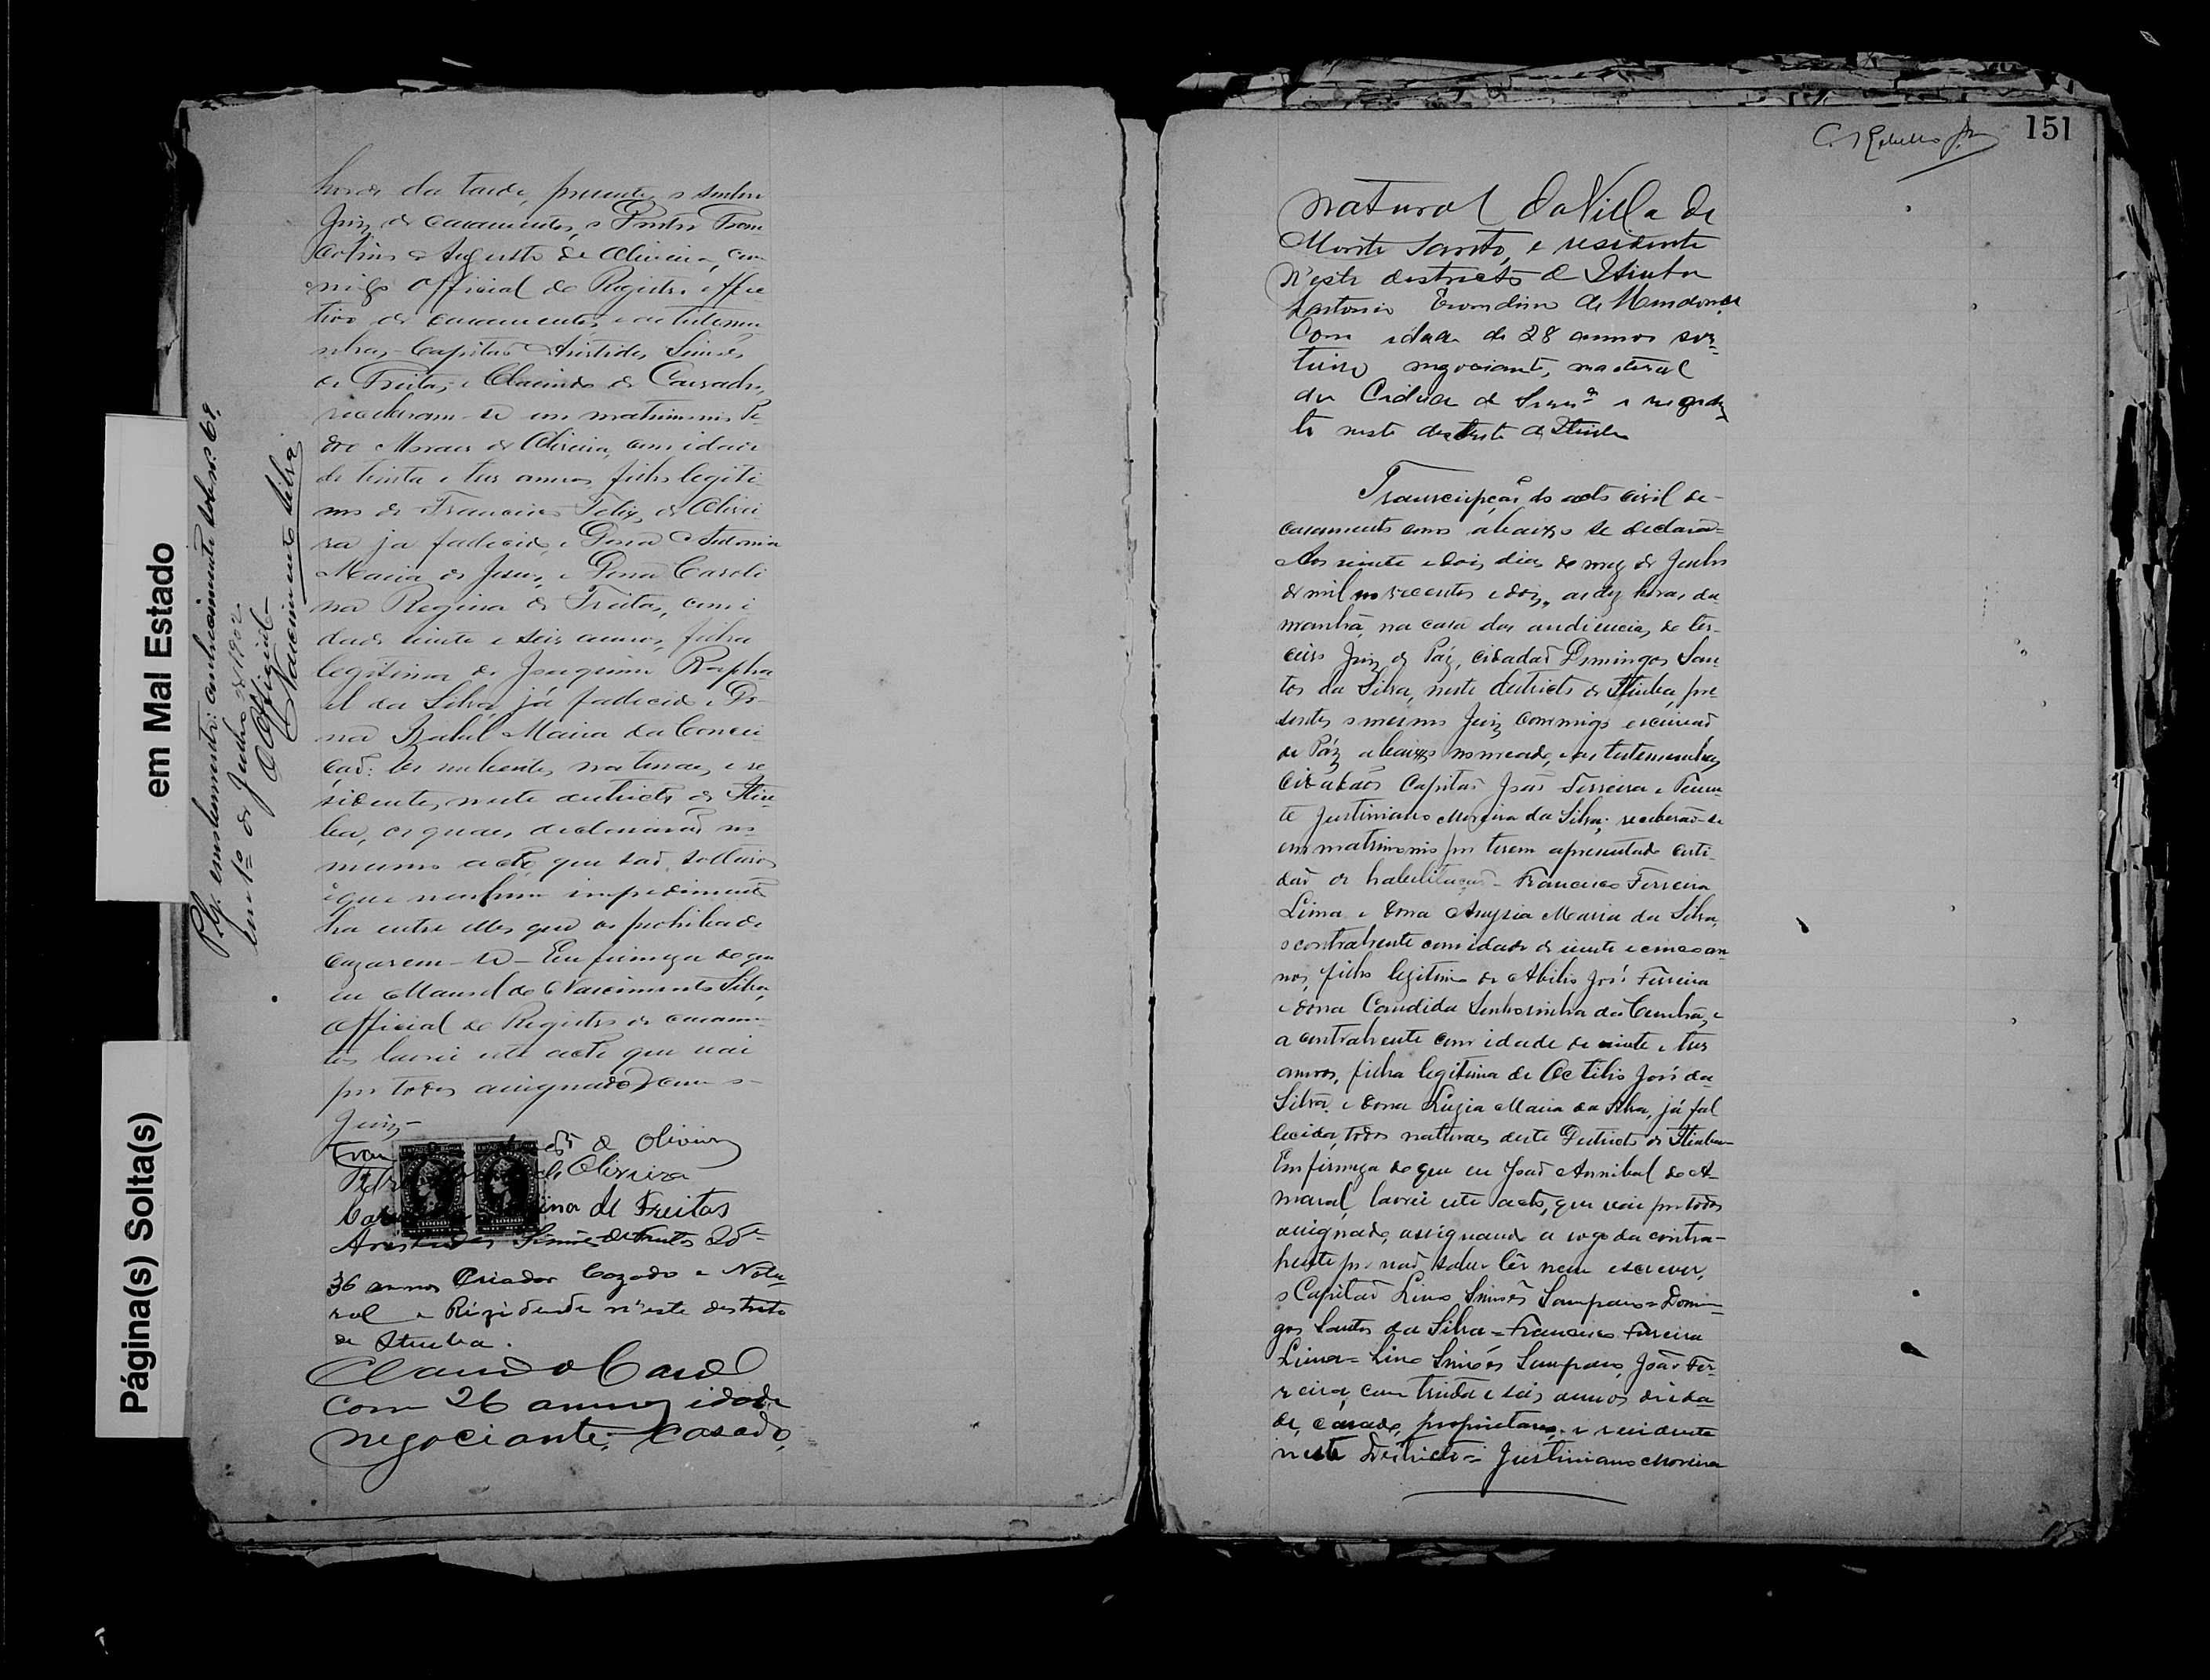 em Mal Estado
Página(s) Solta(s)
Pg. emolumento: authenticamente sob nº 68.
em 1º de Julho de 1902.
O Official
Nascimento Silva
horas da tarde, presente o senhor
Juiz de casamentos,
Augusto de Oliveira, com
migo Official do Registro effec
tivo de casamentos, e as testemu
nhas Capitão Aristides Simões
de Freitas, e Claudo de Carvalho,
receberam-se em matrimonio Pe
dro Moraes de Oliveira, com idade
de trinta e tres annos, filho legiti
mo de Francisco Felix de Olivei
ra já fallecido, e Dona Antonia
Maria de Jesus, e Dona Caroli
na Regina de Freitas, com i
dade vinte e seis annos, filha
legitima de Joaquim Rapha
el da Silva, já fallecido e Do
na Izabel Maria da Concei
ção: os nubentes, naturaes, e re
sidentes, neste districto de Itiu
ba, os quaes, declararão no
mesmo acto, que são solteiros
e que nenhum impedimento
ha entre elles que os prohiba de
cazarem-se - Em firmeza do que
eu Manoel do Nascimento Silva,
Official do Registro de casamen
tos lavrei este acto que vai
por todos assignado, com o
Juiz-
de Oliveira
Oliveira
de Freitas
Aristides Simões de Freitas
36 annos Criador Cazado e Natu
ral e Rezidente n'este destrito
de Itiuba.
Com 26 annos idade
negociante, Casado,
151
C. Rebello Jr.
natural da Villa de
Monte Santo, e residente
n'este districto de Itiuba
de Mendonça
Com idade de 28 annos sol
teiro negociante, natural
da Cidade de e rezeden
te neste destrito de Itiuba
Transcripção do acto civil de-
casamento como abaixo se declara=
Aos vinte e dois dias do mez de Junho
de mil novecentos e dois, as dez horas da
manhã, na casa das audiencias do ter-
ceiro Juiz de Páz, cidadão Domingos San
tos da Silva, neste districto de Itiuba, pre
sentes o mesmo Juiz commigo escrivão
de Páz abaixo nomeado, e as testemunhas,
Cidadãos Capitão João Ferreira e Tenen
te Justiniano Moreira da Silva; receberão-se
em matrimonio por terem apresentado certi
dão de habilitação - Francisco Ferreira
Lima e Dona Anysia Maria da Silva,
o contrahente com idade de vinte e cinco an
nos, filho legitimo de Abilio José Ferreira
e dona Candida Senhorinha da Cunha, e
a contrahente com idade de vinte e tres
annos, filha legitima de Octilio José da
Silva e Dona Luzia Maria da Silva, já fal
lecida, todos naturaes deste Districto de Itiuba
Em firmeza do que eu João Annibal do A-
maral, lavrei este acto, que vai por todos
assignado, assignando a rogo da contra-
hente por não saber lêr nem escrever,
o Capitão Lino Simões Sampaio= Domin
gos Santos da Silva= Francisco Ferreira
Lima= Lino Simões Sampaio, João Fer-
reira, com trinta e seis annos de ida
de, casado, proprietario, e residente
neste Districto= Justiniano Moreira